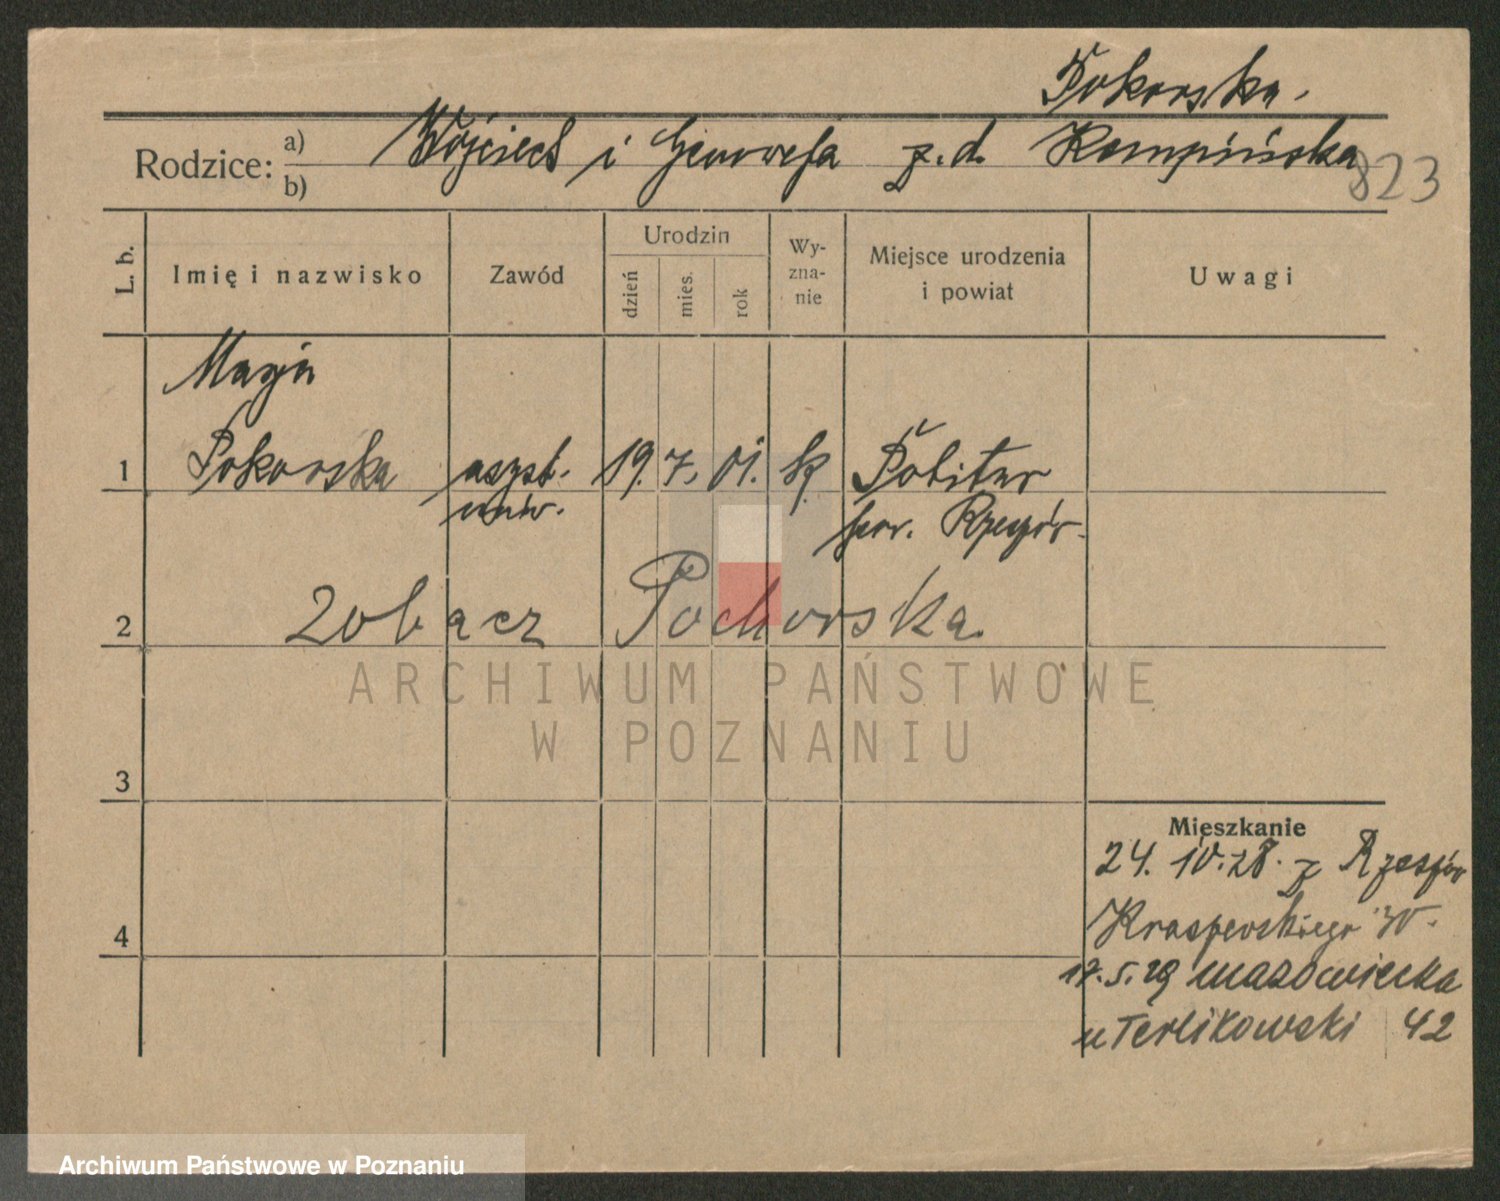 Pokorska.
Rodzice: a) b) Wojciech i Genowefa z. d. Kempińska
823
L. b.
Imię i nazwisko
Zawód
Urodzin
dzień
mies.
rok
Wy-
zna-
nie
Miejsce urodzenia
i powiat
Uwagi
Marja
1 Pokorska asyst. 19. 7. 01. rk
uniw.
pow.
2 Zobacz Pochorska
3
4
ARCHIWUM PAŃSTWOWE
W POZNANIU
Mieszkanie
24. 10. 28. z
Kraszewskiego
17. 5. 29 Mazowiecka
u Terlikowski 42
Archiwum Państwowe w Poznaniu